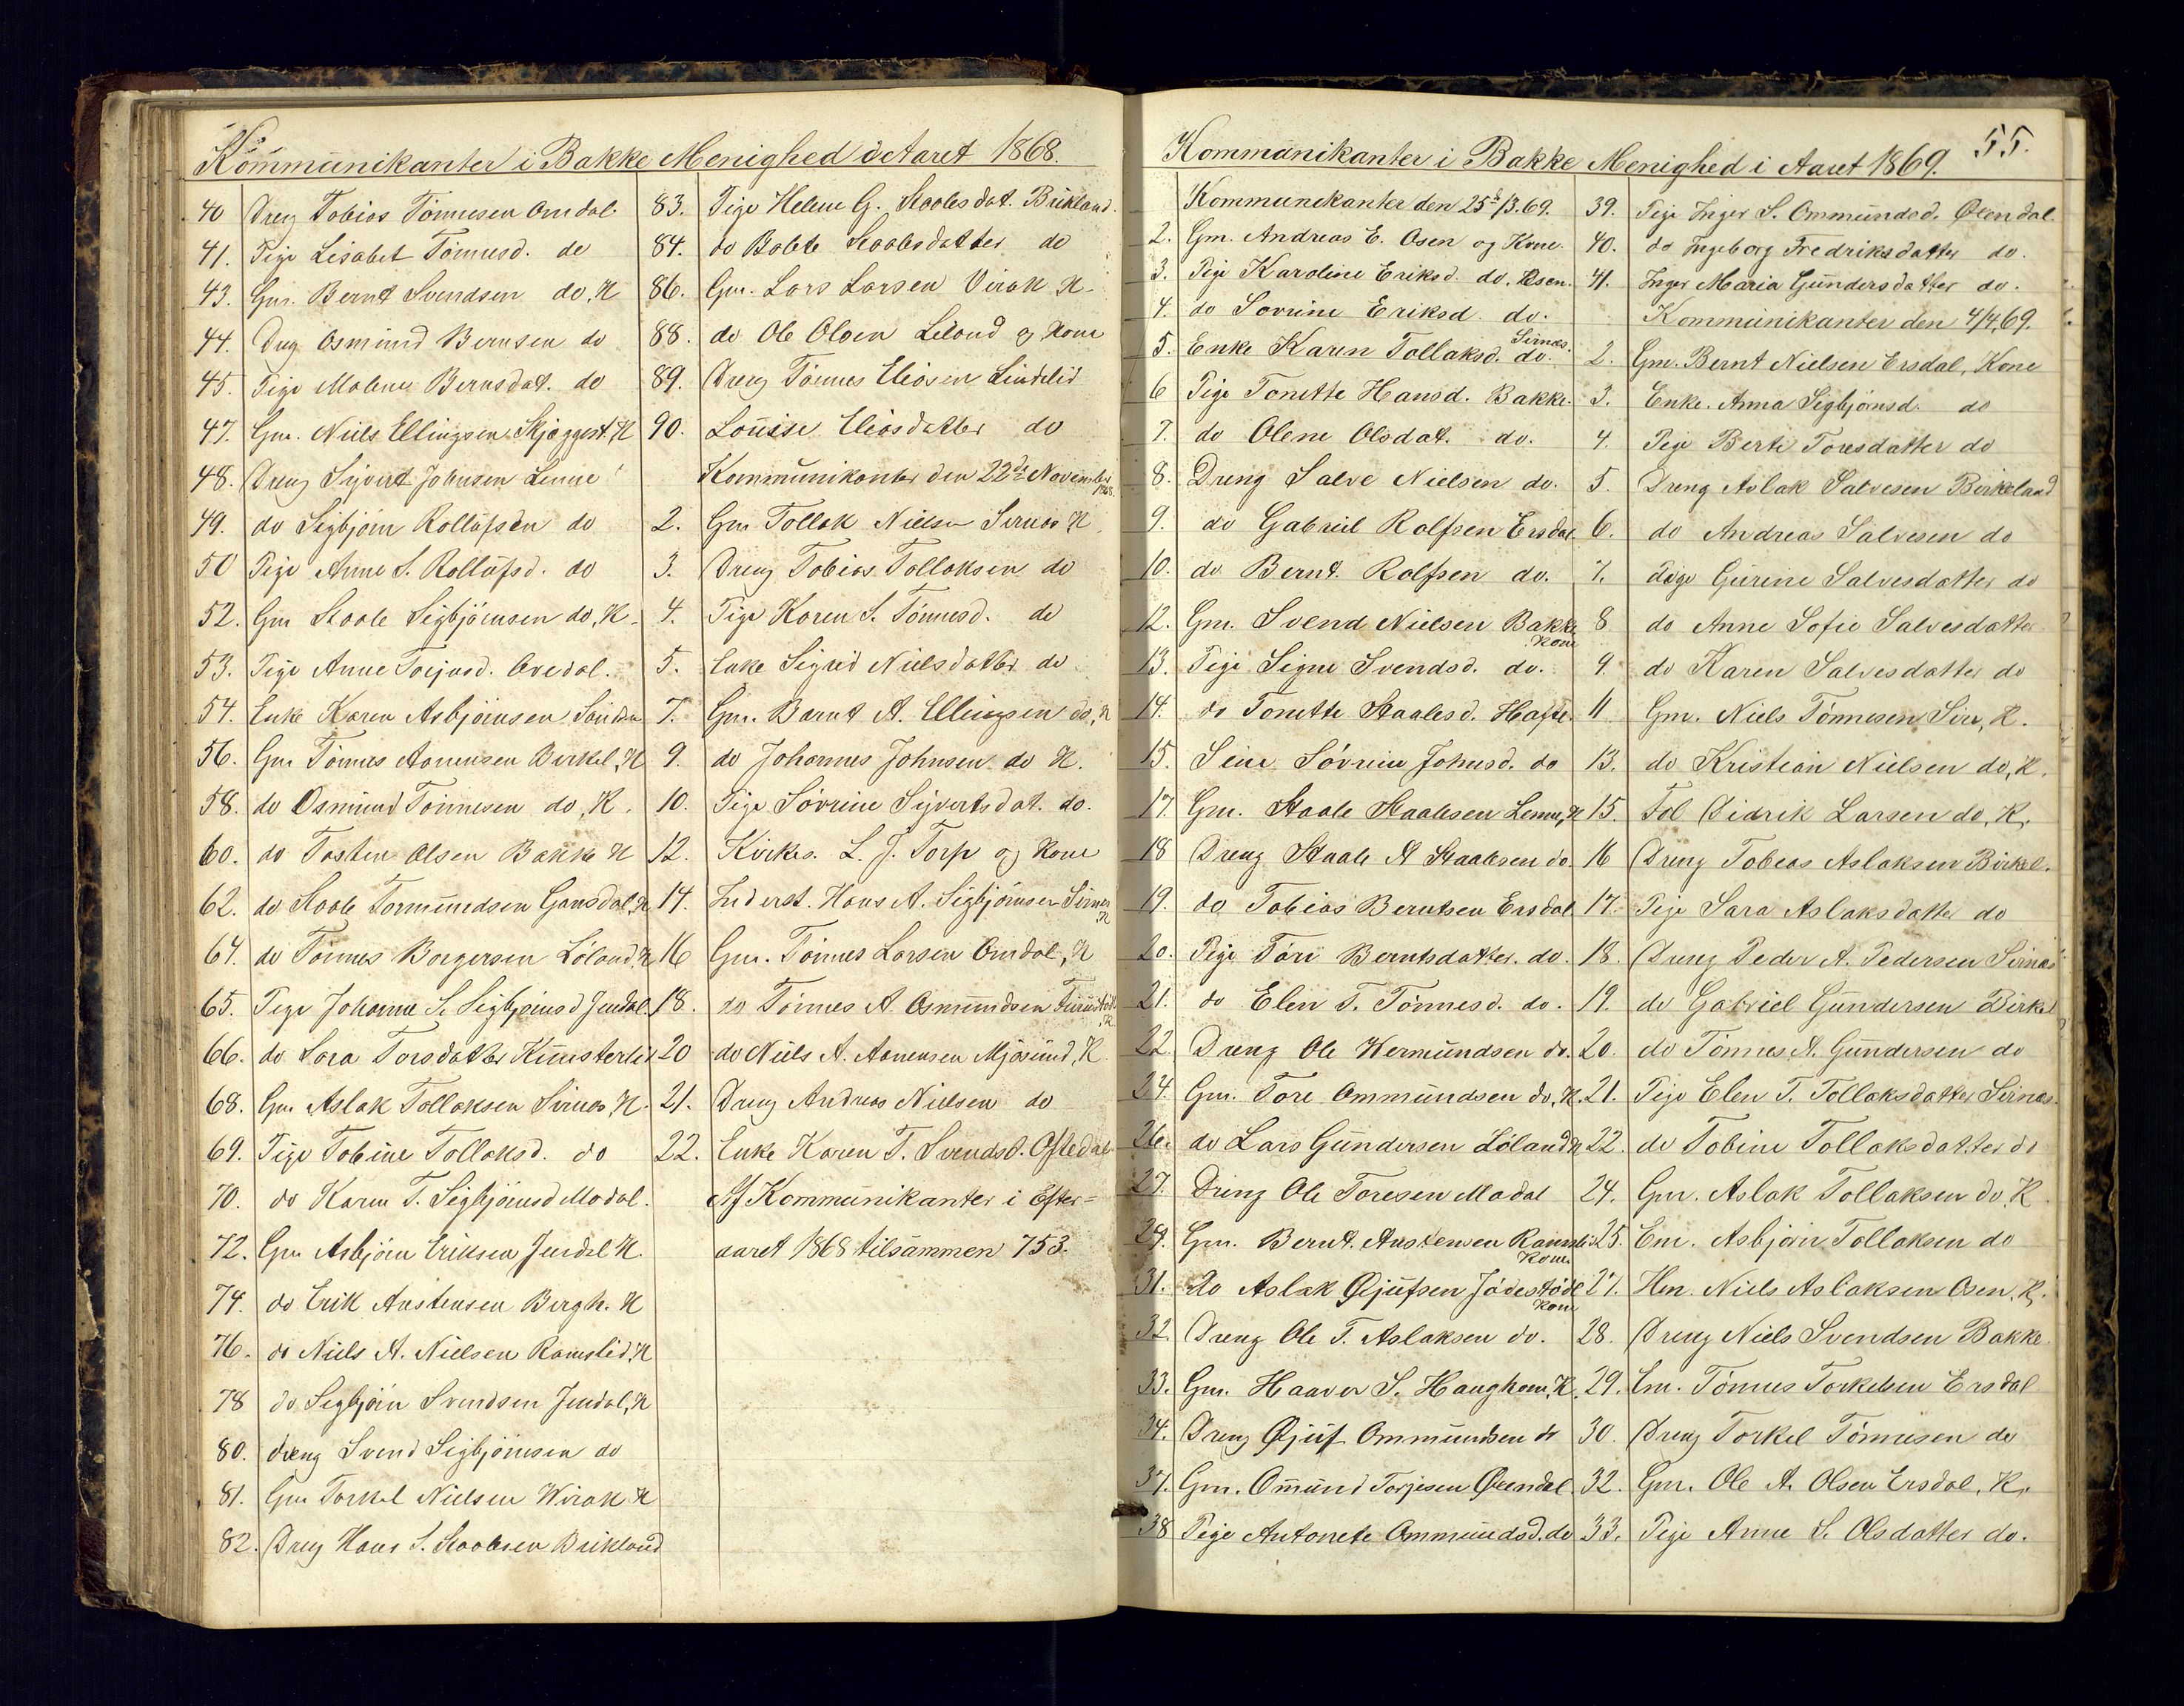 Kommunikanter i Bakke Menighed i Aaret 1868.
40 Dreng Tobias Tönnesen Omdal.
41. Pige Lisabet Tönnesd. do
43. Gm. Bernt Svendsen do, K
44. Dreng Osmund Bernsen do
45. Pige Malene Bernsdat. do
47. Gm. Niels Ellingsen Skjeggest. K
48. Dreng Sigvert Johnsen Lenne
49. do Sigbjörn Rollufsen do
50 Pige Anne S. Rollufsd. do
52. Gm Staale Sigbjörnsen do, K.
53. Pige Anne Torjusd. Avedal.
54. Enke Karen Asbjörnsen
56. Gm Tönnes Aanensen Birkel, K
58. do Osmund Tönnesen do, K.
60. do Tosten Olsen Bakke K
62. do Staale Tormundsen Gansdal, K
64. do Tönnes Borgersen Löland, K
65. Pige Johanne S. Sigbjörnsd Jendal.
66. do Sara Torsdatter
68. Gm Aslak Tollaksen Sirnæs K.
69. Pige Tobine Tollaksd. do
70. do Karen T. Sigbjörnsd Modal.
72. Gm Asbjörn Eriksen Jendal K.
74. do Erik Austensen Bergh. K
76. do Niels A. Nielsen Ramslid, K
78 do Sigbjörn Svendsen Jendal, K
80. dreng Svend Sigbjörnsen do
81. Gm Torkel Nielsen Wirak K
82. Dreng Hans S. Staalesen Birkland
83. Pige Helene G. Staalesdat. Birkland.
84. do Bolete Staalesdatter do
86. Gm. Lars Larsen Virak K.
88. do Ole Olsen Leland og Kone
89. Dreng Tönnes Eliasen Lindelid
90. Louise Eliasdatter do
Kommunikanter den 22de November 1868.
2. Gm Tollak Nielsen Sirnæs K.
3. Dreng Tobias Tollaksen do
4. Pige Karen S. Tönnesd. do
5. Enke Sigrid Nielsdatter do
7. Gm. Barnt A. Ellingsen do, K
9. do Johannes Johnsen do K.
10. Pige Sörrine Sigvertsdat. do.
12. Kirkes. L. J. Torp og Kone
14. Inderst. Hans A. Sigbjörnsen Sirnes K
16 Gm. Tönnes Larsen Omdal, K
18. do Tönnes A. Osmundsen
20 do Niels A. Aanensen Mjösund, K.
21. Dreng Andreas Nielsen do
22. Enke Karen T. Svendsd. Oftedal.
Af Kommunikanter i Efter-
aaret 1868 tilsammen 753.
55.
Kommunikanter i Bakke Menighed i Aaret 1869.
Kommunikanter den 25de/3.69.
2. Gm. Andreas E. Osen og Kone.
3. Pige Karoline Eriksd. do. Osen.
4. do Sorrine Eriksd. do.
5. Enke Karen Tollaksd. do. Sirnæs.
6 Pige Tonette Hansd. Bakke.
7. do Olene Olsdat. do.
8. Dreng Salve Nielsen do.
9. do Gabriel Rolfsen Ersdal
10. do Bernt. Rolfsen do.
12. Gm. Svend Nielsen Bakke Kone
13. Pige Signe Svendsd. do.
14. do Tonette Staalesd.
15. Sine Sörrine Johnsd. do
17. Gm. Staale Staalesen Lenne, K
18 Dreng Staale A Staalesen do.
19. do Tobias Berntsen Ersdal
20. Pige Töri Berntsdatter. do.
21. do Elen T. Tönnesd. do.
22 Dreng Ole Hermundsen do.
24. Gm. Tore Ommundsen do, K.
26. do Lars Gundersen Löland K
27. Dreng Ole Toresen Modal
29. Gm. Bernt. Austensen Ramslid Kone
31. do Aslak Öjufsen Jödestödl Kone
32. Dreng Ole T. Aslaksen do.
33. Gm. Haaver S. Haughom, K.
34. Dreng Öjuf Ommundsen do
37. Gm. Ommund Torjesen Øiendal.
38 Pige Antonete Ommundsd. do
39. Pige Inger S. Ommundsd. Øiendal
40. do Ingeborg Fredriksdatter do.
41. Inger Maria Gundersdatter do.
Kommunikanter den 4/4,69.
2. Gm. Bernt Nielsen Ersdal, Kone
3. Enke. Anna Sigbjörnsd. do
4. Pige Berte Toresdatter do
5. Dreng Aslak Salvesen Birkeland
6. do Andreas Salvesen do
7. Pige Gurine Salvesdatter do
8 do Anne Sofie Salvesdatter
9. do Karen Salvesdatter do
11 Gm. Niels Tönnesen Sire, K.
13. do Kristian Nielsen do, K.
15. Fol Didrik Larsen do, K,
16 Dreng Tobias Aslaksen Birkel.
17. Pige Sara Aslaksdatter do
18. Dreng Peder A. Pedersen Sirnæs
19. do Gabriel Gundersen Birkel
20. do Tönnes A. Gundersen do
21. Pige Elen T. Tollaksdatter Sirnæs.
22. do Tobine Tollaksdatter do
24. Gm. Aslak Tollaksen do, K.
25. Em. Asbjörn Tollaksen do
27. Hm. Niels Aslaksen Osen, K.
28. Dreng Niels Svendsen Bakke
29. Em. Tönnes Torkelsen Ersdal
30. Dreng Torkel Tönnesen do
32. Gm. Ole A. Olsen Ersdal, K.
33. Pige Anne S. Olsdatter do.